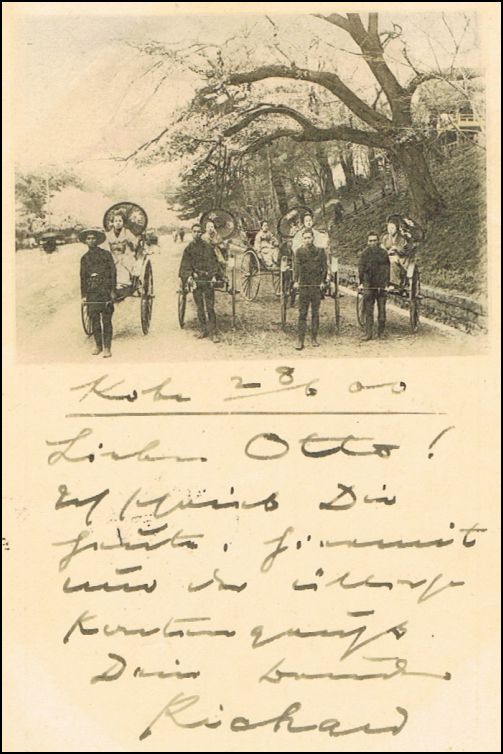 Kobe 28/6 00
Lieber Otto!
Ich schrieb Dir
heute, hiermit
nur der übliche
Kartengruß
Dein Bruder
Richard